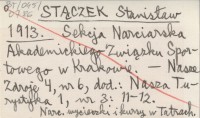 STĄCZEK Stanisław
1913. Sekcja Narciarska
Akademickiego Związku Spor-
towego w Krakowie. — Nasze
Zdroje 4, nr 6, dod.: Nasza Tu-
rystyka 1, nr 3: 11-12.
Narc. wycieczki i kursy w Tatrach.